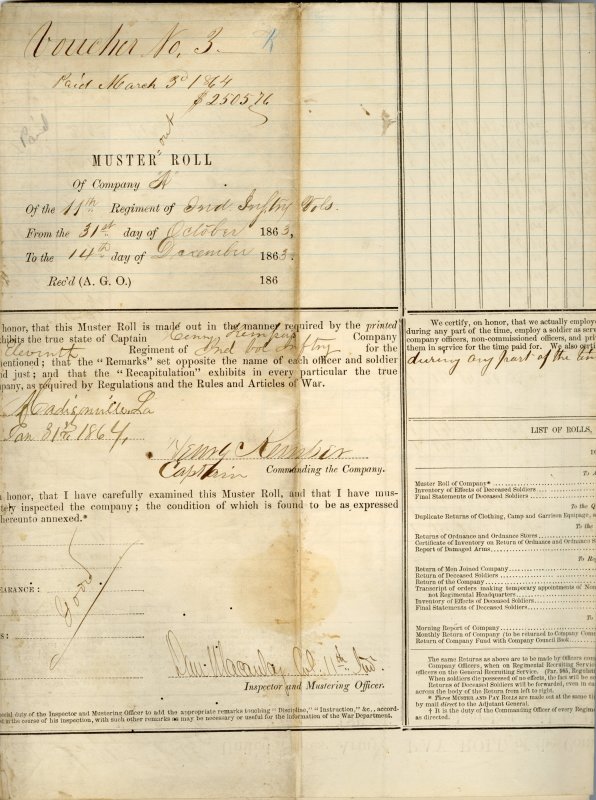 Voucher No. 3.
Paid March 3d 1864
$2505 76
Paid
out
MUSTER ROLL
Of Company K
Of the 11th Regiment of Ind Inftry Vols.
From the 31st day of October 1863,
To the 14th day of December 1863.
Rec'd (A. G. O.) 186
honor, that this Muster Roll is made out in the manner required by the printed
hibits the true state of Captain Henry Kemper Company
Eleventh Regiment of Ind Vol Inftry for the
entioned; that the "Remarks" set opposite the name of each officer and soldier
nd just; and that the "Recapitulation" exhibits in every particular the true
pany, as required by Regulations and the Rules and Articles of War.
Madisonville La
Jan 31st 1864,
Henry Kemper
Captain Commanding the Company.
honor, that I have carefully examined this Muster Roll, and that I have mus-
tely inspected the company; the condition of which is found to be as expressed
hereunto annexed.*
EARANCE:
good
S:
Dan Macauley Col. 11th Ind.
Inspector and Mustering Officer.
ecial duty of the Inspector and Mustering Officer to add the appropriate remarks touching "Discipline," "Instruction," &c., accord-
in the course of his inspection, with such other remarks as may be necessary or useful for the information of the War Department.
We certify, on honor, that we actually employe
during any part of the time, employ a soldier as serv
company officers, non-commissioned officers, and pri
them in service for the time paid for. We also certi
during any part of the tim
LIST OF ROLLS,
To A
Muster Roll of Company*
Inventory of Effects of Deceased Soldiers
Final Statements of Deceased Soldiers
To the Q
Duplicate Returns of Clothing, Camp and Garrison Equipage, a
To the
Returns of Ordnance and Ordnance Stores
Certificate of Inventory on Return of Ordnance and Ordnance S
Report of Damaged Arms
To Reg
Return of Men Joined Company
Return of Deceased Soldiers
Return of the Company
Transcript of orders making temporary appointments of Non
not Regimental Headquarters
Inventory of Effects of Deceased Soldiers
Final Statements of Deceased Soldiers
To
Morning Report of Company
Monthly Return of Company (to be returned to Company Comm
Return of Company Fund with Company Council Book
The same Returns as above are to be made by Officers comm
Company Officers, when on Regimental Recruiting Service
officers on the General Recruiting Service (Par. 985, Regulati
When soldiers die possessed of no effects, the fact will be so
Returns of Deceased Soldiers will be forwarded, even in cas
across the body of the Return from left to right.
* Four Muster and Pay Rolls are made out at the same ti
by mail direct to the Adjutant General.
† It is the duty of the Commanding Officer of every Regime
as directed.